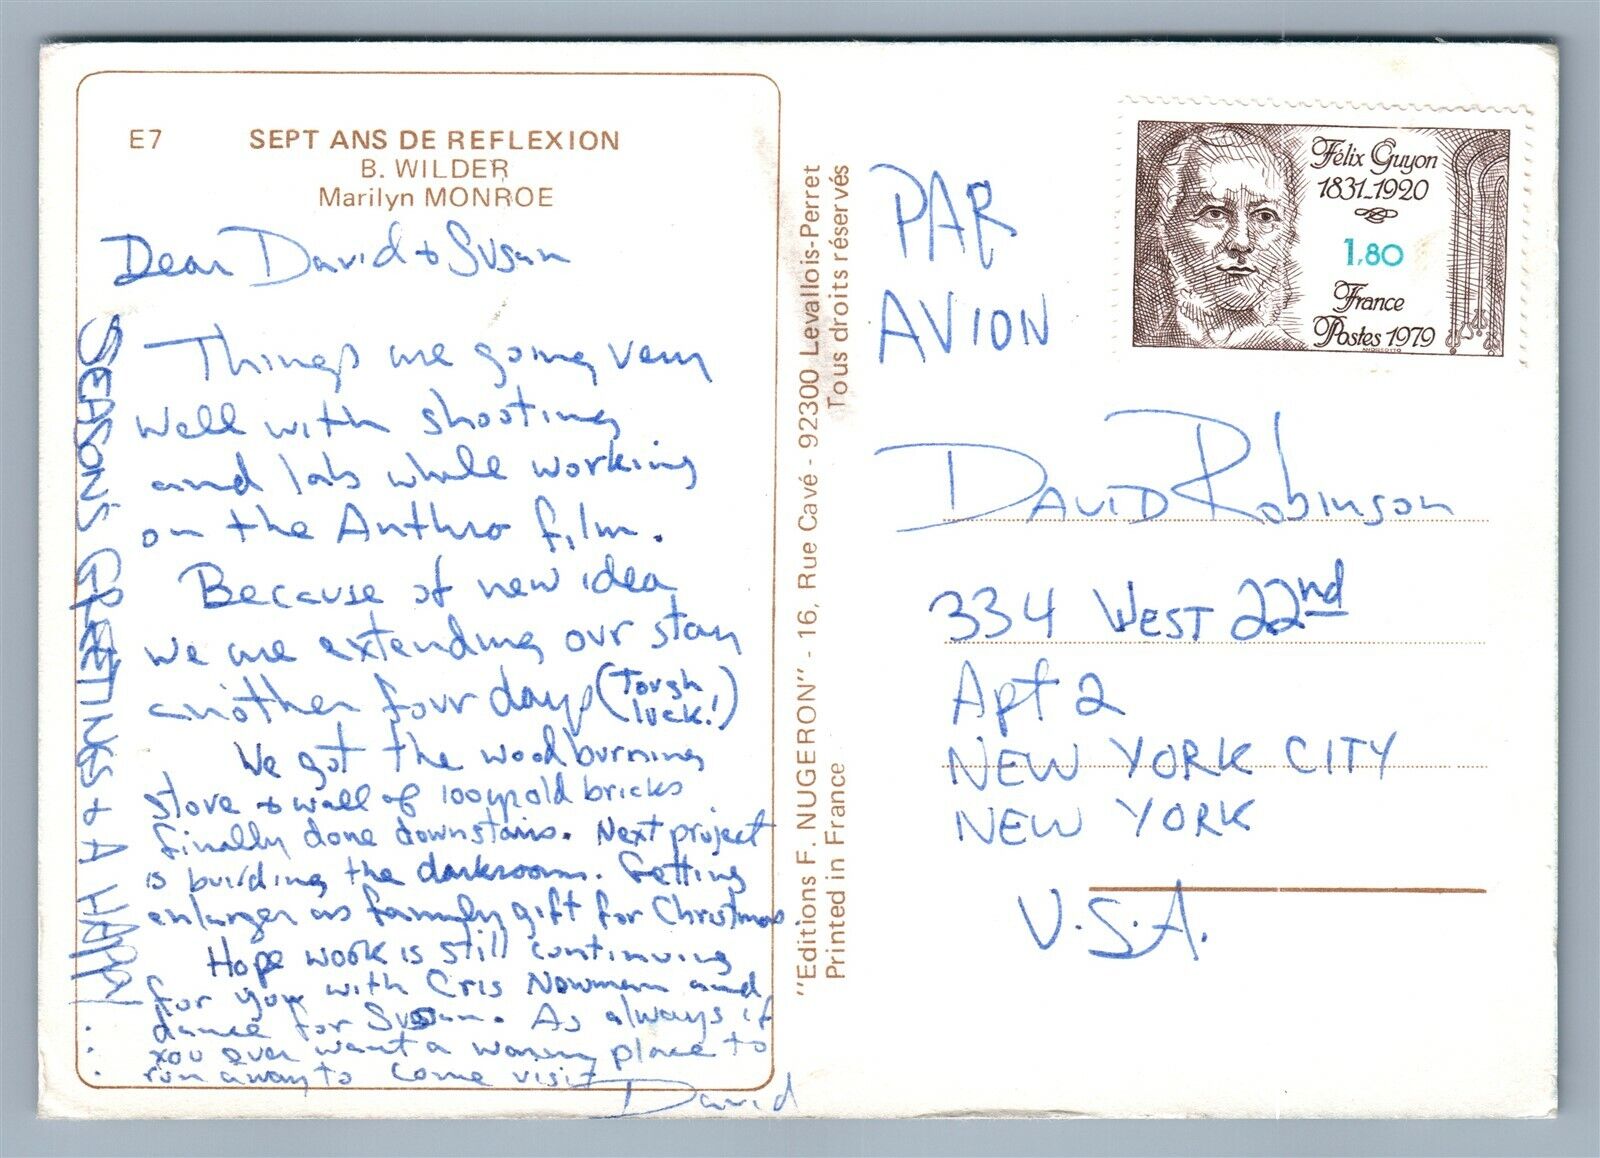 E7 SEPT ANS DE REFLEXION
B. WILDER
Marilyn MONROE
Dear David & Susan
Things are going very
well with shooting
and labs while working
on the Anthro film.
Because of new idea
we are extending our stay
another four days (Tough
luck!)
We got the wood burning
stove & wall of 100 yr old bricks
finally done downstairs. Next project
is building the darkroom. Getting
enlarger as family gift for Christmas.
Hope work is still continuing
for you with Cris Newman and
dance for Susan. As always if
you ever want a warm place to
run away to come visit
David
SEASON'S GREETINGS & A HAPPY...
"Editions F. NUGERON" - 16, Rue Cavé - 92300 Levallois-Perret
Printed in France Tous droits réservés
PAR
AVION
Félix Guyon
1831-1920
1,80
France
Postes 1979
DAVID Robinson
334 WEST 22nd
Apt 2
NEW YORK CITY
NEW YORK
U.S.A.